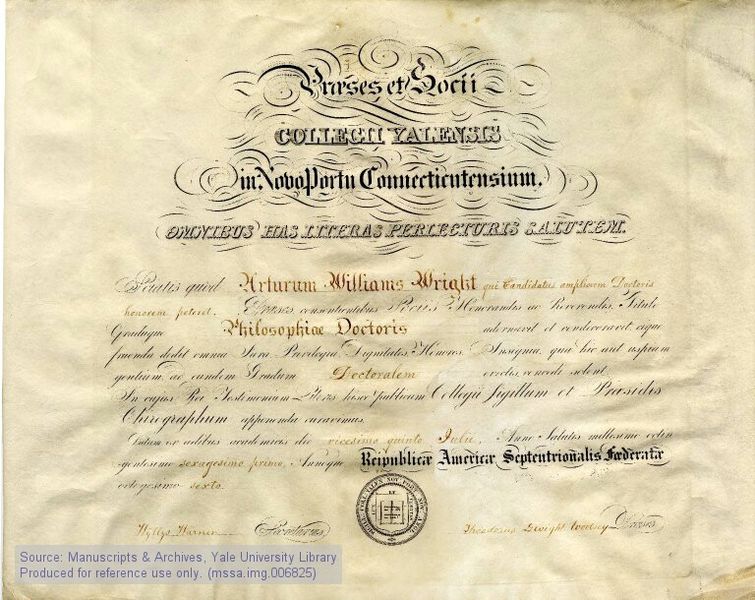 Præses et Socii
COLLEGII YALENSIS
in Novo Portu Connecticutensium.
OMNIBUS HAS LITERAS PERLECTURIS SALUTEM.
Sciatis quod Arturum Williams Wright qui Candidatus ampliorem Doctoris
honorem peteret, Præses consentientibus Sociis Honorandis ac Reverendis, Titulo
Graduque Philosophiæ Doctoris adornavit et condecoravit eique
fruenda dedit omnia Jura, Privilegia, Dignitates, Honores, Insignia, quæ hic aut uspiam
gentium ad eundem Gradum Doctoralem evectis concedi solent.
In cujus Rei Testimonium Literis hisce publicum Collegii Sigillum et Præsidis
Chirographum apponenda curavimus.
Datum ex ædibus academicis die vicesimo quinto Julii, Anno Salutis millesimo octin
gentesimo sexagesimo primo, Annoque Reipublicæ Americæ Septentrionalis Fœderatæ
octogesimo sexto.
Wyllys Warner Secretarius Theodorus Dwight Woolsey Præses
Source: Manuscripts & Archives, Yale University Library
Produced for reference use only. (mssa.img.006825)